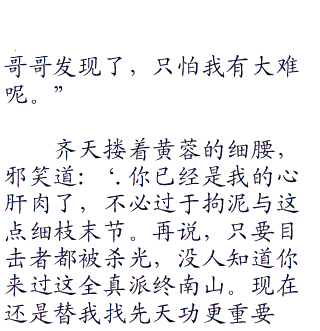 哥哥发现了，只怕我有大难
呢。”
齐天搂着黄蓉的细腰，
邪笑道：‘.你已经是我的心
肝肉了，不必过于拘泥与这
点细枝末节。再说，只要目
击者都被杀光，没人知道你
来过这全真派终南山。现在
还是替我找先天功更重要